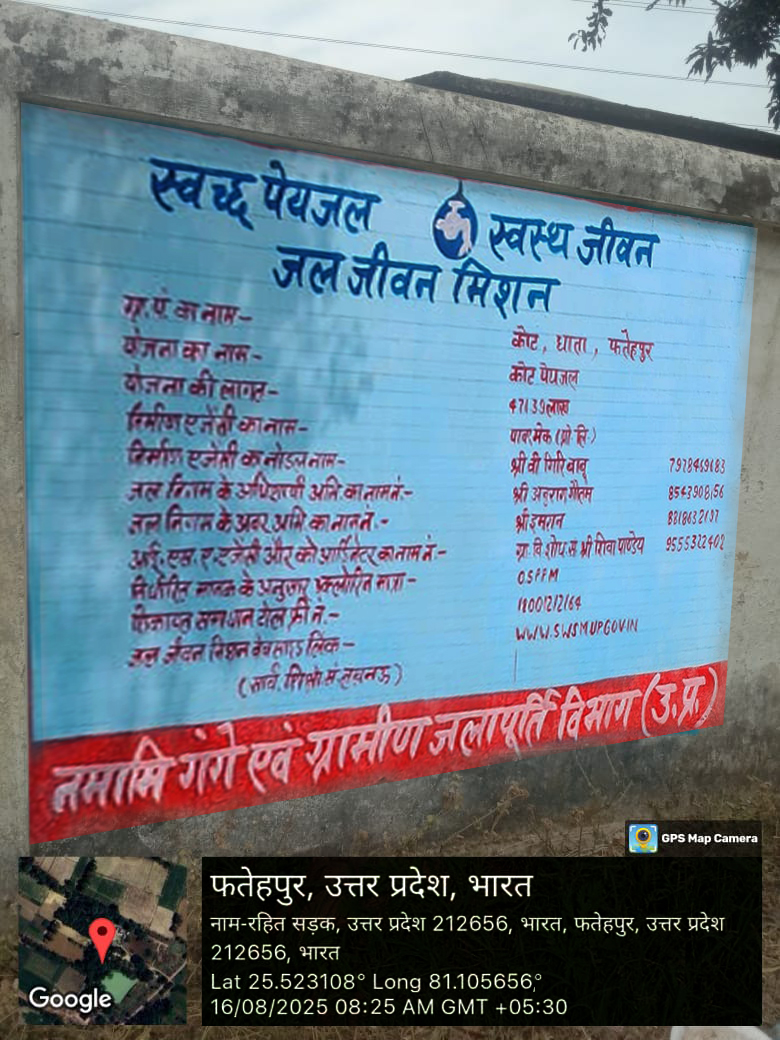 स्वच्छ पेयजल स्वस्थ जीवन
जल जीवन मिशन
ग्रा.पं. का नाम- कोट, धाता, फतेहपुर
योजना का नाम- कोट पेयजल
योजना की लागत- लाख
निर्माण एजेंसी का नाम- पावर मेक (प्रो.लि.)
निर्माण एजेंसी का नोडल नाम- श्री वी गिरि बाबू
जल निगम के अधिशाषी अभि का नाम नं.- श्री अनुराग गौतम
जल निगम के अवर अभि का नाम नं.- श्री इमरान
आई.एस.ए. एजेंसी और को आर्डिनेटर का नाम नं.- ग्रा.वि.शोध.सं श्री शिवा पाण्डेय 9555322402
निर्धारित मानक के अनुसार क्लोरिन मात्रा- 05PPM
शिकायत समाधान टोल फ्री नं.-
जल जीवन मिशन वेबसाइड लिंक- WWW.SWSMUPGOVIN
नमामि गंगे एवं ग्रामीण जलापूर्ति विभाग (उ.प्र.)
GPS Map Camera
फतेहपुर, उत्तर प्रदेश, भारत
नाम-रहित सड़क, उत्तर प्रदेश 212656, भारत, फतेहपुर, उत्तर प्रदेश
212656, भारत
Lat 25.523108° Long 81.105656°
16/08/2025 08:25 AM GMT +05:30
Google